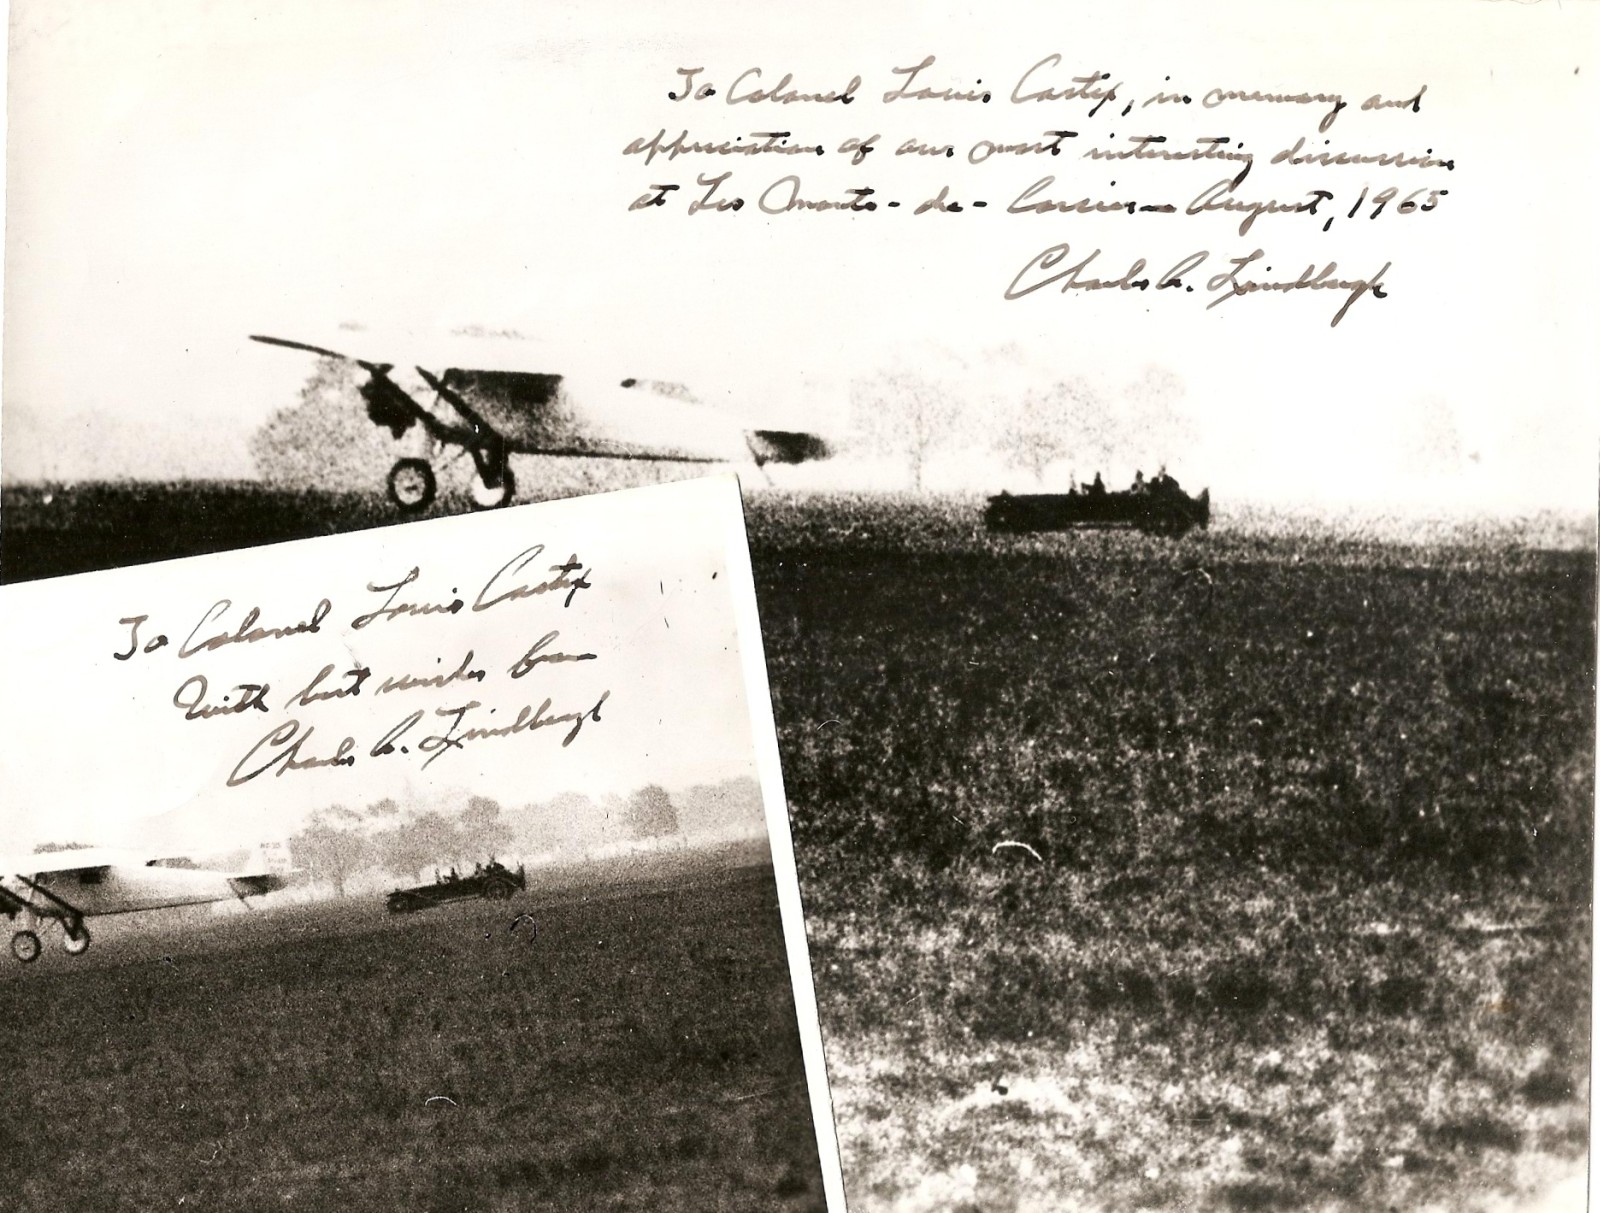 To Colonel Louis Castex, in memory and
appreciation of our most interesting discussion
at Les Monts-de-Corsier — August, 1965
Charles A. Lindbergh
To Colonel Louis Castex
With best wishes from
Charles A. Lindbergh